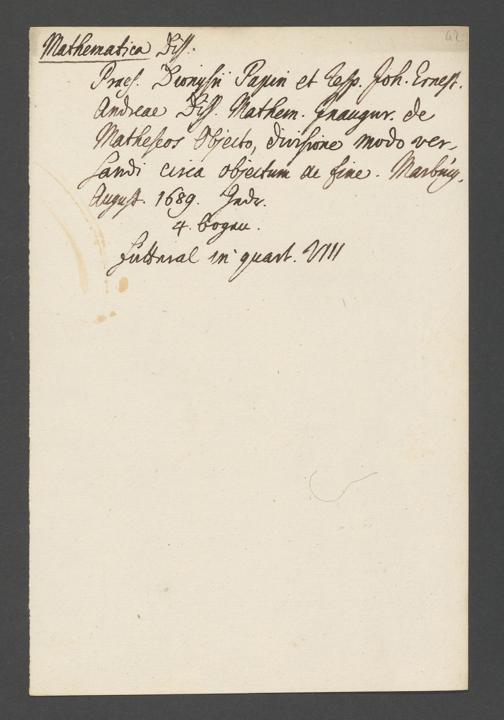 62
Mathematica Diss.
Praes. Dionysii Papin et Resp. Joh. Ernest.
Andreae Diss. Mathem. Inaugur. de
Matheseos Objecto, divisione modo ver-
sandi circa objectum ac fine. Marburg,
August. 1689. Gedr.
4. bogen.
futteral in quart. VIII